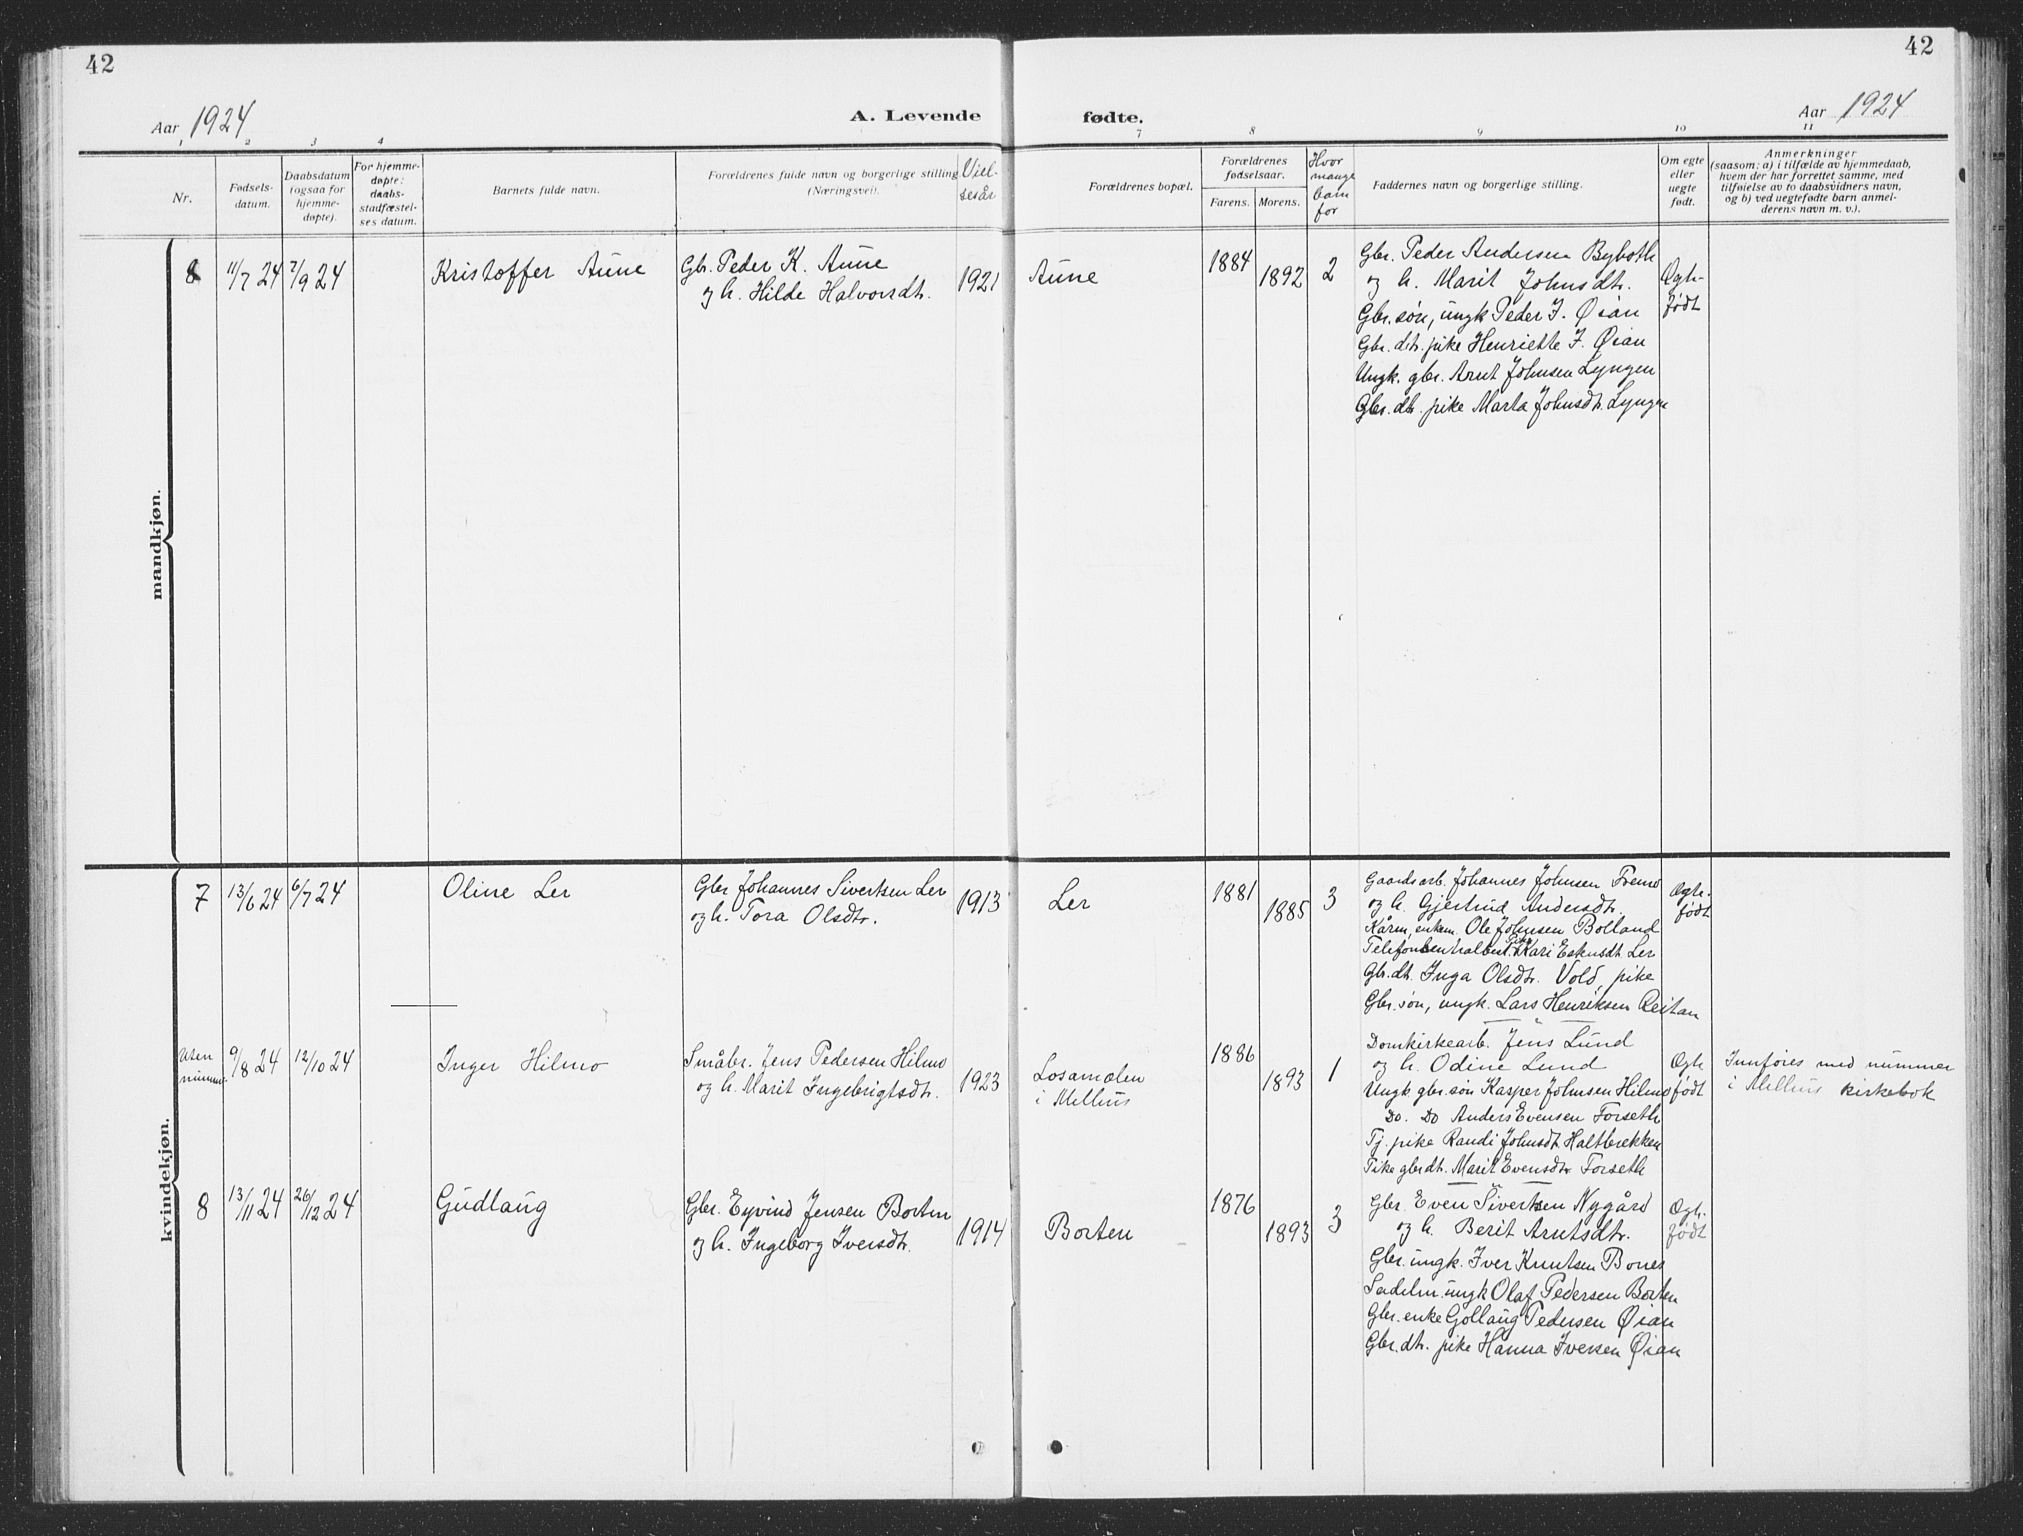 42
42
Aar 1924
A. Levende
fødte.
Aar 1924
1 2 3 4 7 8 9 10 11
Nr.
Fødsels-
datum.
Daabsdatum
(ogsaa for
hjemme-
døpte).
For hjemme-
døpte:
daabs-
stadfæstel-
ses datum.
Barnets fulde navn.
Forældrenes fulde navn og borgerlige stilling
(Næringsvei).
Viel-
sesår
Forældrenes bopæl.
Forældrenes
fødselsaar.
Farens. Morens.
Hvor
mange
barn
for
Faddernes navn og borgerlige stilling.
Om egte
eller
uegte
født.
Anmerkninger
(saasom: a) i tilfælde av hjemmedaab,
hvem der har forrettet samme, med
tilføielse av to daabsvidners navn,
og b) ved uegtefødte barn anmel-
derens navn m. v.).
mandkjøn.
8 11/7 24 7/9 24 Kristoffer Aune
Gbr. Peder K. Aune
og h. Hilde Halvorsdtr.
1921
Aune
1884 1892 2
Gbr. Peder Andersen Byboth
og h. Marit Johnsdtr.
Gbr. søn, ungk Peder J. Øian
Gbr. dtr. pike Henriette J. Øian
Ungk. gbr. Arnt Johnsen Lyngen
Gbr. dtr. pike Marta Johnsdtr. Lyngen
Ægte-
født
kvindekjøn.
7 13/6 24 6/7 24 Oline Ler
Gbr Johannes Sivertsen Ler
og h. Tora Olsdtr.
1913
Ler
1881 1885 3
Gaardsarb. Johannes Johnsen Fremo
og h. Gjertrud Andersdtr.
Kårm, enkem. Ole Johnsen Bolland
Kari Esknsdt. Ler
Gbr. dt. Inga Olsdtr. Vold, pike
Gbr. søn, ungk. Lars Henriksen Reitan
født
Uten
nummer
9/8 24 12/10 24 Inger Hilmo
Småbr. Jens Pedersen Hilmo
og h. Marit Ingebrigtsdtr.
1923
Losamoen
i Melhus
1886 1893 1
Domkirkearb. Jens Lund
og h. Odine Lund
Ungk. gbr. søn Kasper Johnsen Hilmo
Do. Do Anders Evensen Forseth
Tj. pike Randi Johnsdt. Haltbrekken
Pike gbr dt. Marit Evensdtr Forseth
født
Innføres med nummer
i Melhus kirkebok
8 13/11 24 26/12 24 Gudlaug
Gbr. Eyvind Jensen Borten
og h. Ingeborg Iversdtr.
1914
Borten
1876 1893 3
Gbr. Even Sivertsen Nygård
og h. Berit Arntsdtr.
Gbr. ungk. Iver Knutsen Bones
Sadelm. ungk Olaf Pedersen Borten
Gbr. enke Gollaug Pedersen Øian
Gbr. dtr. pike Hanna Iversen Øian
født